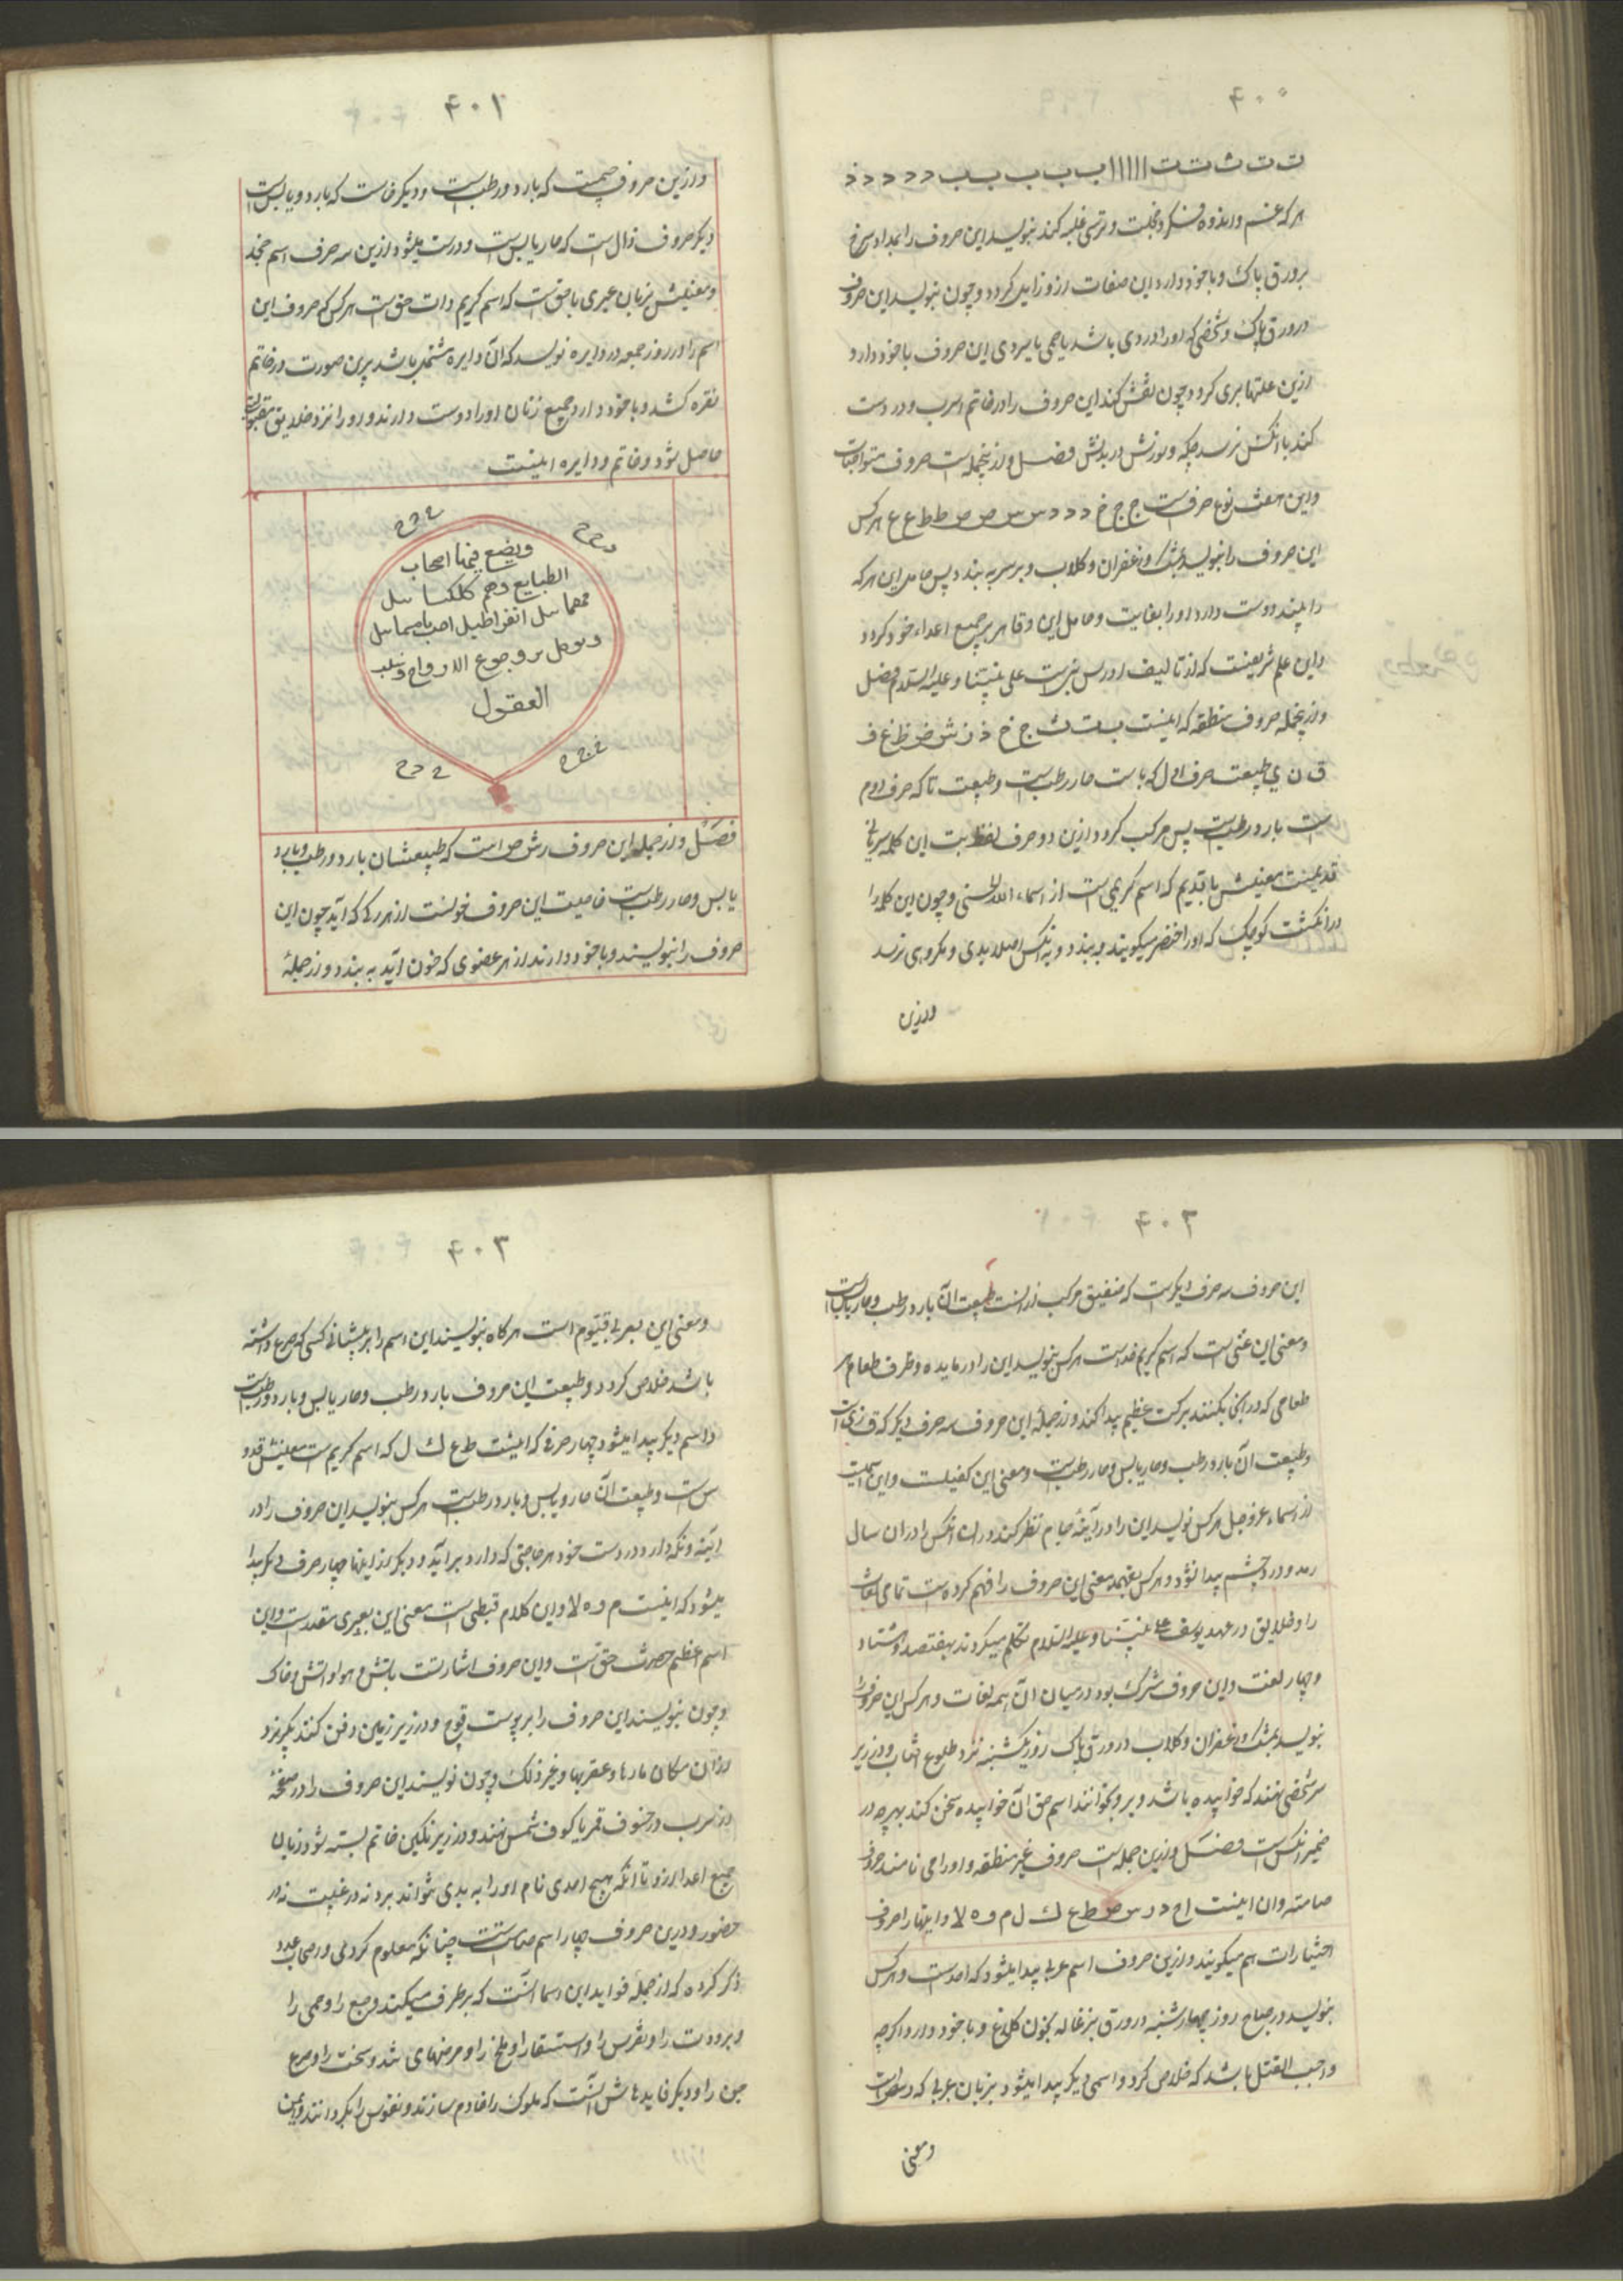 ۴۰۰
ت ت ث ت ت ا ا ا ا ا ب ب ب ب ب د د د د د
هر که غم و اندوه و فکر و خجلت و ترس غلبه کند بنویسد این حروف را بمداد سرخ
بر ورق پاک و با خود دارد این صفات از و زایل کردد و چون بنویسد این حروف
در ورق پاک و شخصی که او را دردی باشد یا حمی یا سردی این حروف با خود دارد
ازین علتها بری کردد چون نقش کند این حروف را در خاتم اسرب و در دست
کند با انکس نرسد و سوزش در بدنش فصل و از نجمله است حروف متواخیات
و این هفت نوع حرفست ج ج خ د د د س س ص ص ط ط ع ع هر کس
این حروف را بنویسد بمشک و زعفران و کلاب و بر سر به بندد پس حامل این هر که
را بیند دوست دارد او را بغایت و حامل این و قاهر بر جمیع اعداء خود کردد
و این علم شریفست که از تالیف ادریس نبی است علی نبینا و علیه السلام فصل
و از نجمله حروف منطقه که اینست ب ت ث ج خ ذ ز ش ض ظ غ ف
ق ن ی طبیعت حرف اول که با ست حار رطبست و طبیعت تا که حرف دوم
است بارد رطبست پس مرکب کردد ازین دو حرف لفظ بت این کلمه سریانی
قدیمست معنیش یا قدیم که اسم کریمی است از اسماء الله الحسنی و چون این کلمه را
در انکشت کوچک که او را خنصر میکویند به بندد و به انکس اصلا بدی و مکروهی نرسد
وازین
۴۰۱
وازین حروف جیمست که بارد و رطبست و دیکر خاست که بارد و یابس است
دیکر حروف ذال است که حار یابس است و درست میشود ازین سه حرف اسم جخذ
و معنیش بزبان عبری یا حق است که اسم کریم ذات حق است هر کس که حروف این
اسم را در روز جمعه در دایره نویسد که آن دایره مشتمل باشد برین صورت در خاتم
نقره کشد و با خود دارد جمیع زنان او را دوست دارند و او را نزد خلایق مقبولیت
حاصل شود و خاتم و دایره اینست
ویضع فیها اصحاب
الطبایع وهم کلکسائیل
انفراطیل
ویوکل بر وجوع الارواح ونیلب
العقول
فصل و از جمله این حروف رش ص است که طبیعتشان بارد و رطب و بارد
یابس و حار رطبست خاصیت این حروف خونست از هر رکی که آید چون این
حروف را بنویسند و با خود دارند از هر عضوی که خون آید به بندد و از جملهٔ
۴۰۲
این حروف سه حرف دیکرست که ضفیق مرکب از انست طبیعت آن بارد رطب و حار یابس است
و معنی این غنی است که اسم کریم خداست هر کس بنویسد این را در مایده و ظرف طعام هر
طعامی که در انجا بکنند برکت عظیم پیدا کند و از جملهٔ این حروف سه حرف دیکر که ق ز ی است
و طبیعت آن بارد رطب و حار یابس و حار رطبست و معنی این کفیلست و این اسمیست
از اسماء عز و جل هر کس نویسد این را در آینهٔ نظر کند در ان انکس را در ان سال
رمد و درد چشم پیدا نشود و هر کس بفهمد معنی این حروف را فهم کرده است تمامی لغات
را و خلایق در عهد یوسف علی نبینا و علیه السلام تکلم میکردند بهفتصد و هشتاد
و چهار لغت و این حروف مشترک بود در میان آن همه لغات و هر کس این حروف را
بنویسد بمشک و زعفران و کلاب در ورق پاک روز یکشنبه نزد طلوع آفتاب و در زیر
سر شخصی نهند که خوابیده باشد و برو بخوانند اسم حق آن خوابیده سخن کند بهر چه در
ضمیر انکس است فصل و ازین جمله است حروف غیر منطقه و او را می نامند حروف
صامته و ان اینست ا ح د ر س ص ط ع ک ل م و ه لا و اینها را حروف
اختیارات هم میکویند و ازین حروف اسم عربی پیدا میشود که احدست و هر کس
بنویسد در صباح روز چهارشنبه در ورق بزغاله بخون کلاغ و با خود دارد اکرچه
واجب القتل باشد که خلاص کردد و اسمی دیکر پیدا میشود بزبان عربی که رسص است
ومعنی
۴۰۳
و معنی این بعربی قیوم است هر کاه بنویسند این اسم را بر پیشانی کسی که صرع داشته
باشد خلاص کردد و طبیعت این حروف بارد رطب و حار یابس و بارد و رطبست
و اسم دیکر پیدا میشود چهار حرفی که اینست ط ع ک ل که اسم کریم است معنیش قدو
س است و طبیعت آن حار و یابس و بارد رطبست هر کس بنویسد این حروف را در
آینه و نکه دارد در دست خود هر حاجتی که دارد بر آید و دیکر از اینها چهار حرف دیکر پیدا
میشود که اینست م و ه لا و این کلام قبطی است معنی این بعبری مقدرست و این
اسم اعظم حضرت حق است و این حروف اشارتست باتش و هوا و اتش و خاک
و چون بنویسند این حروف را بر پوست قوچ و در زیر زمین دفن کنند بکریزد
از ان مکان مارها و عقربها و غیر ذلک و چون نویسند این حروف را در صفحهٔ
از سرب در خسوف قمر یا کسوف شمس نهند و در زیر نکین خاتم بسته شود زبان
جمیع اعدا ازو تا آنکه هیچ احدی نام او را به بدی نتواند برد نه در غیبت نه در
حضور و درین حروف چهار اسم صامتست چنانکه معلوم کردی و صاحب عدد
ذکر کرده که از جملهٔ فواید این اسما آنست که برطرف میکند وجع را و حمی را
و برودت را و نقرس را و استسقا را و بلخ را و مرضهای شدو سخت را و صرع
جن را و دیکر فایدهاش آنست که ملوک را خادم سازند و نفوس را بکردانند